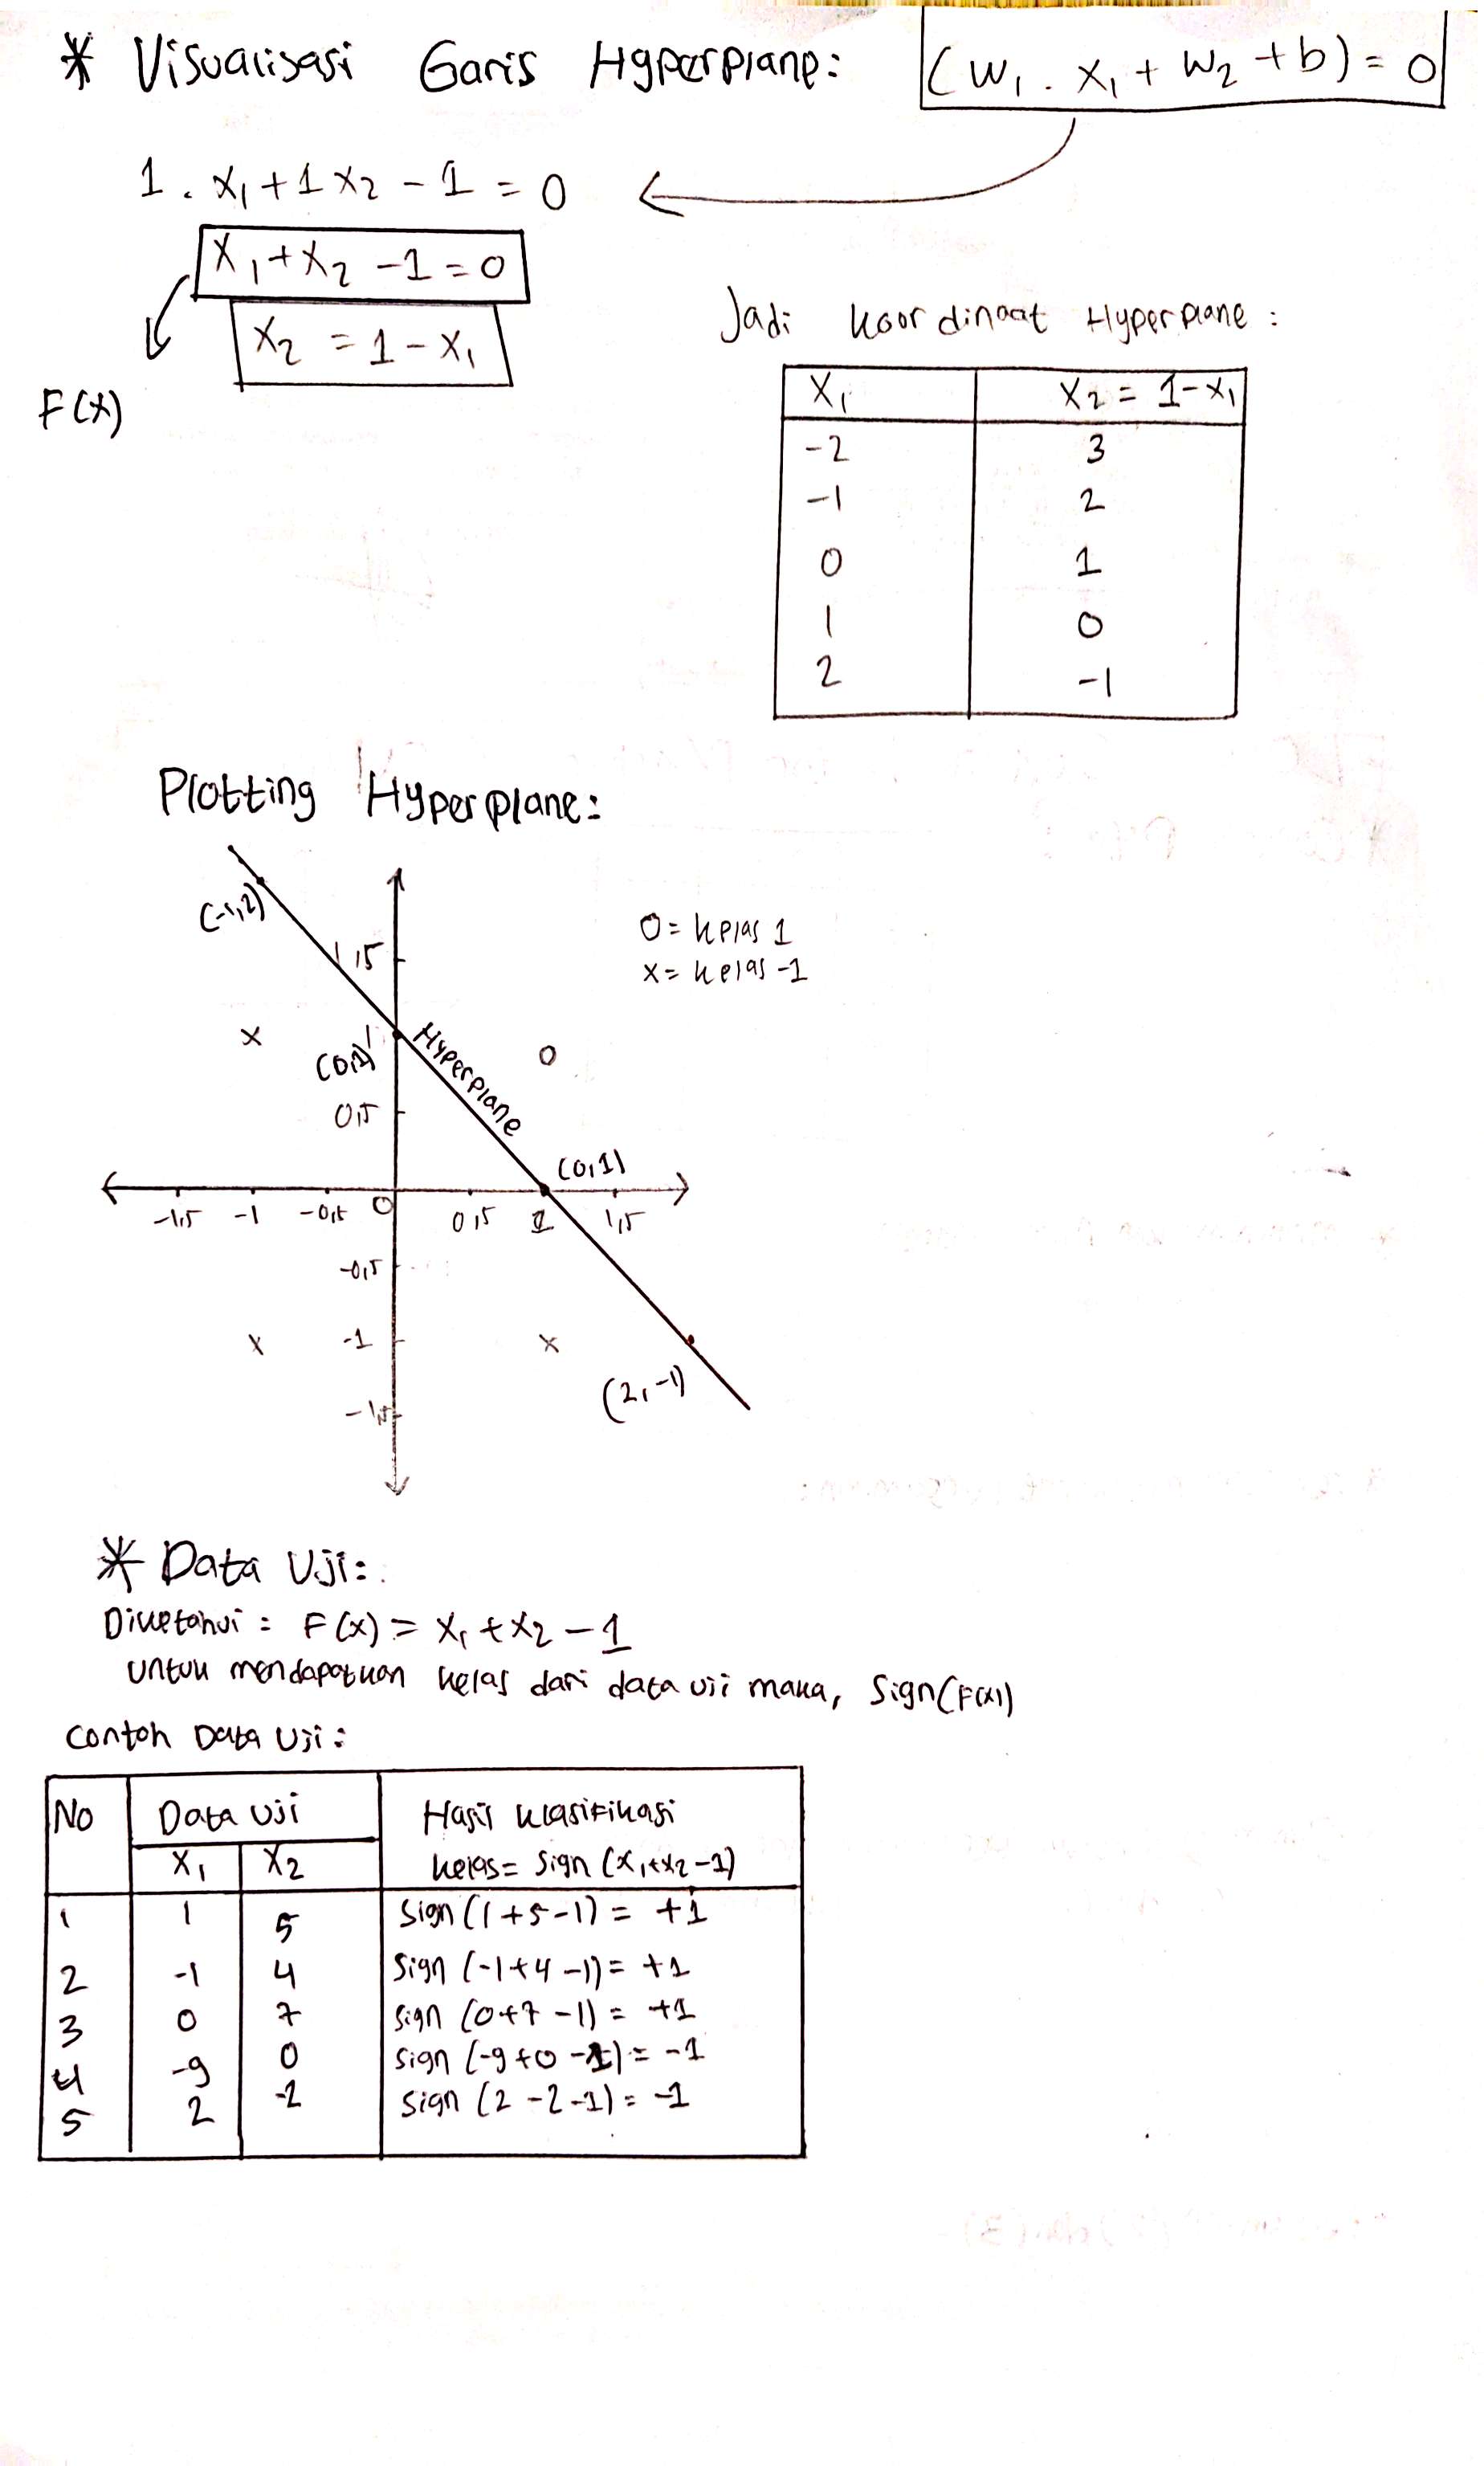 * Visualisasi Garis Hyperplane: (w₁ . x₁ + w₂ + b) = 0
1 . x₁ + 1 x₂ - 1 = 0
x₁ + x₂ - 1 = 0
x₂ = 1 - x₁
F(x)
Jadi koordinaat Hyperplane :
x₁ x₂ = 1-x₁
-2 3
-1 2
0 1
1 0
2 -1
Plotting Hyperplane:
(-1,2)
1,5
O = kelas 1
x = kelas -1
1
(0,1)
Hyperplane
0,5
(0,1)
-1,5 -1 -0,5 0 0,5 1 1,5
-0,5
-1
(2,-1)
-1,5
* Data Uji:
Diketahui : F(x) = x₁ + x₂ - 1
untuk mendapatkan kelas dari data uji maka, Sign(F(x))
Contoh Data Uji :
No Data Uji Hasil klasifikasi
x₁ x₂ kelas = Sign (x₁+x₂-1)
1 1 5 Sign (1+5-1) = +1
2 -1 4 Sign (-1+4-1) = +1
3 0 7 Sign (0+7-1) = +1
4 -9 0 Sign (-9+0-1) = -1
5 2 -2 Sign (2-2-1) = -1